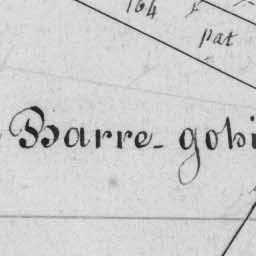 164
pat
Barre-gobi